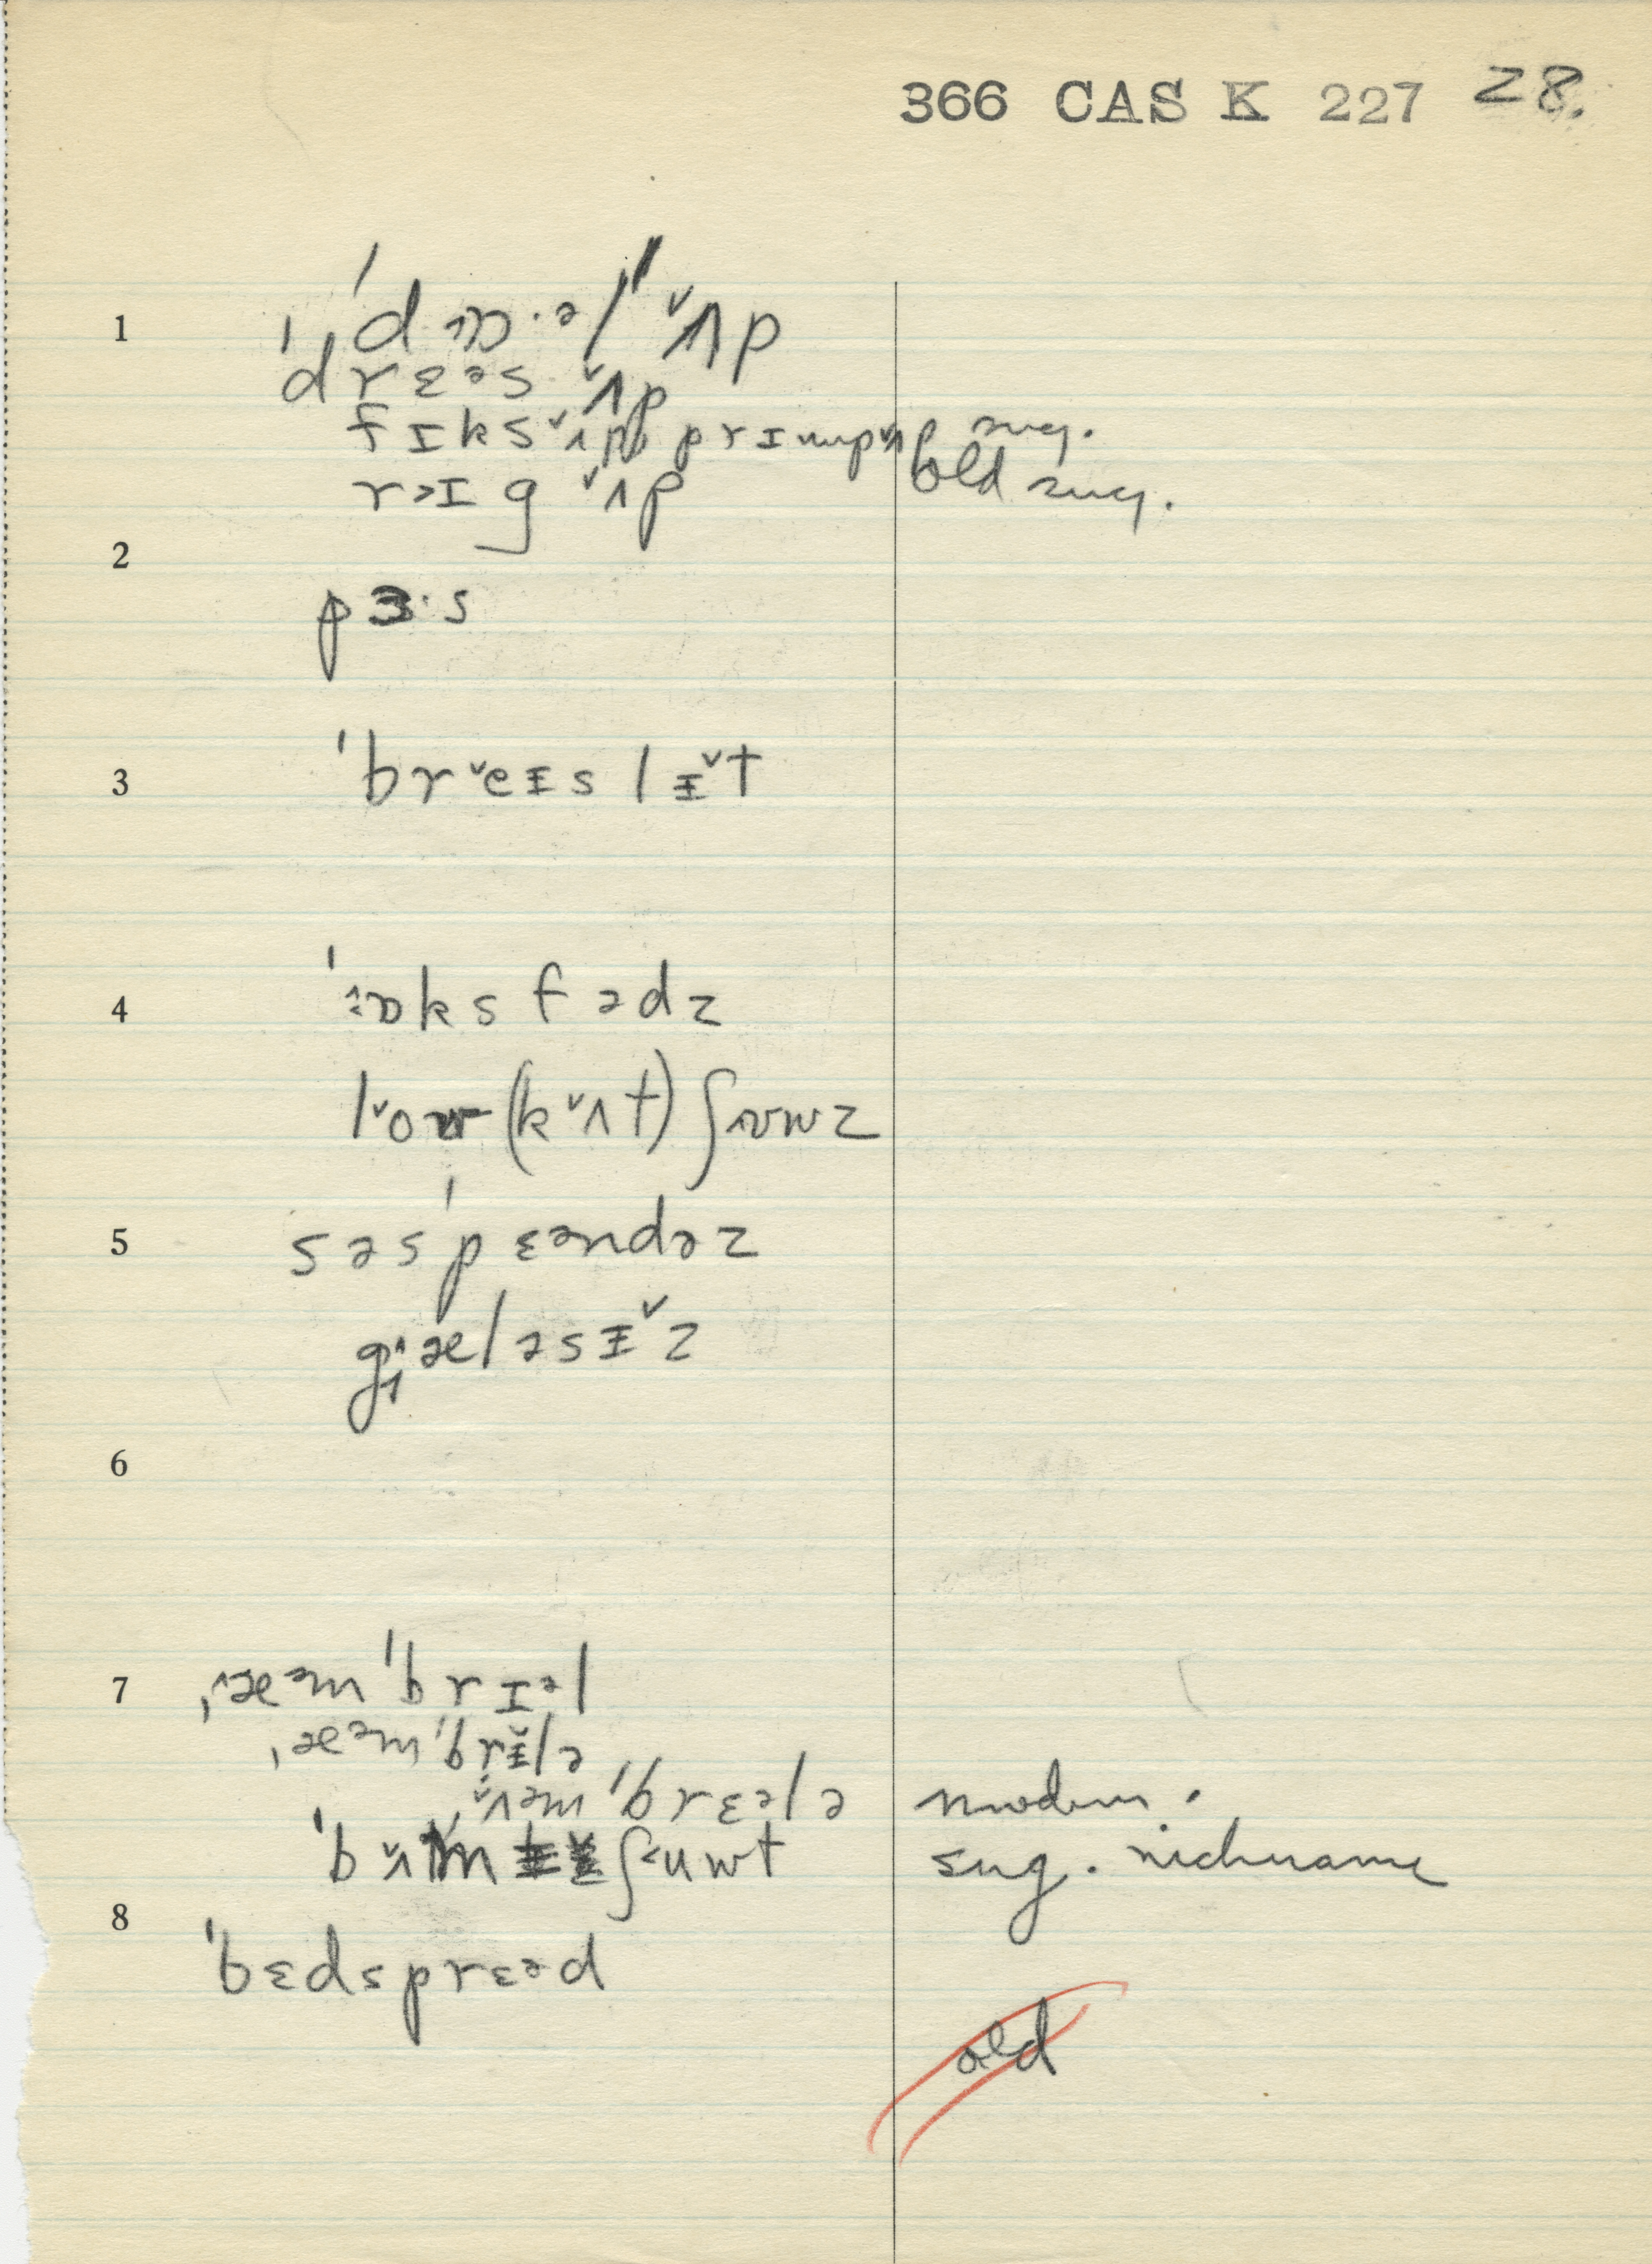 366 CAS K 227 28.
1 ˌˈdɒ·əl ˇʌp
drɛəs ˇʌp
fɪksˇʌp prɪmpˇʌp sug.
rɜɪg ˇʌp old sug.
2
pɜ·s
3 ˈbrˇeɪslɪˇt
4 ˈɒksfədz
lˇow (kˇʌt) ʃuwz
5 səsˈpɛəndəz
gæləsɪˇz
6
7 ˌæəmˈbrɪəl
ˌæəmˈbrɪlə
ˌˇʌəmˈbrɛələ modern.
ˈbˇʌmʃuwt sug. nickname
8 ˈbɛdsprɛəd
old